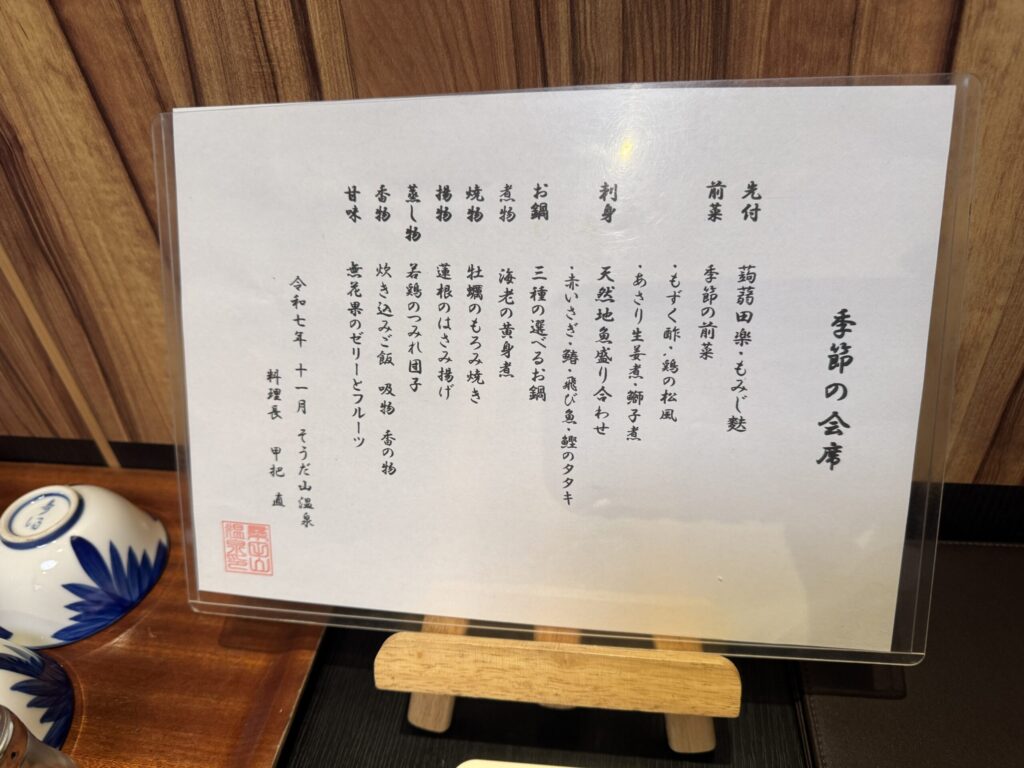 季節の会席
先付 蒟蒻田楽・もみじ麩
前菜 季節の前菜
・もずく酢・鶏の松風
・あさり生姜煮・鰤子煮
刺身 天然地魚盛り合わせ
・赤いさぎ・鰆・飛び魚・鰹のタタキ
お鍋 三種の選べるお鍋
煮物 海老の黄身煮
焼物 牡蠣のもろみ焼き
揚物 蓮根のはさみ揚げ
蒸し物 若鶏のつみれ団子
香物 炊き込みご飯 吸物 香の物
甘味 無花果のゼリーとフルーツ
令和七年 十一月 そうだ山温泉
料理長 甲把 直